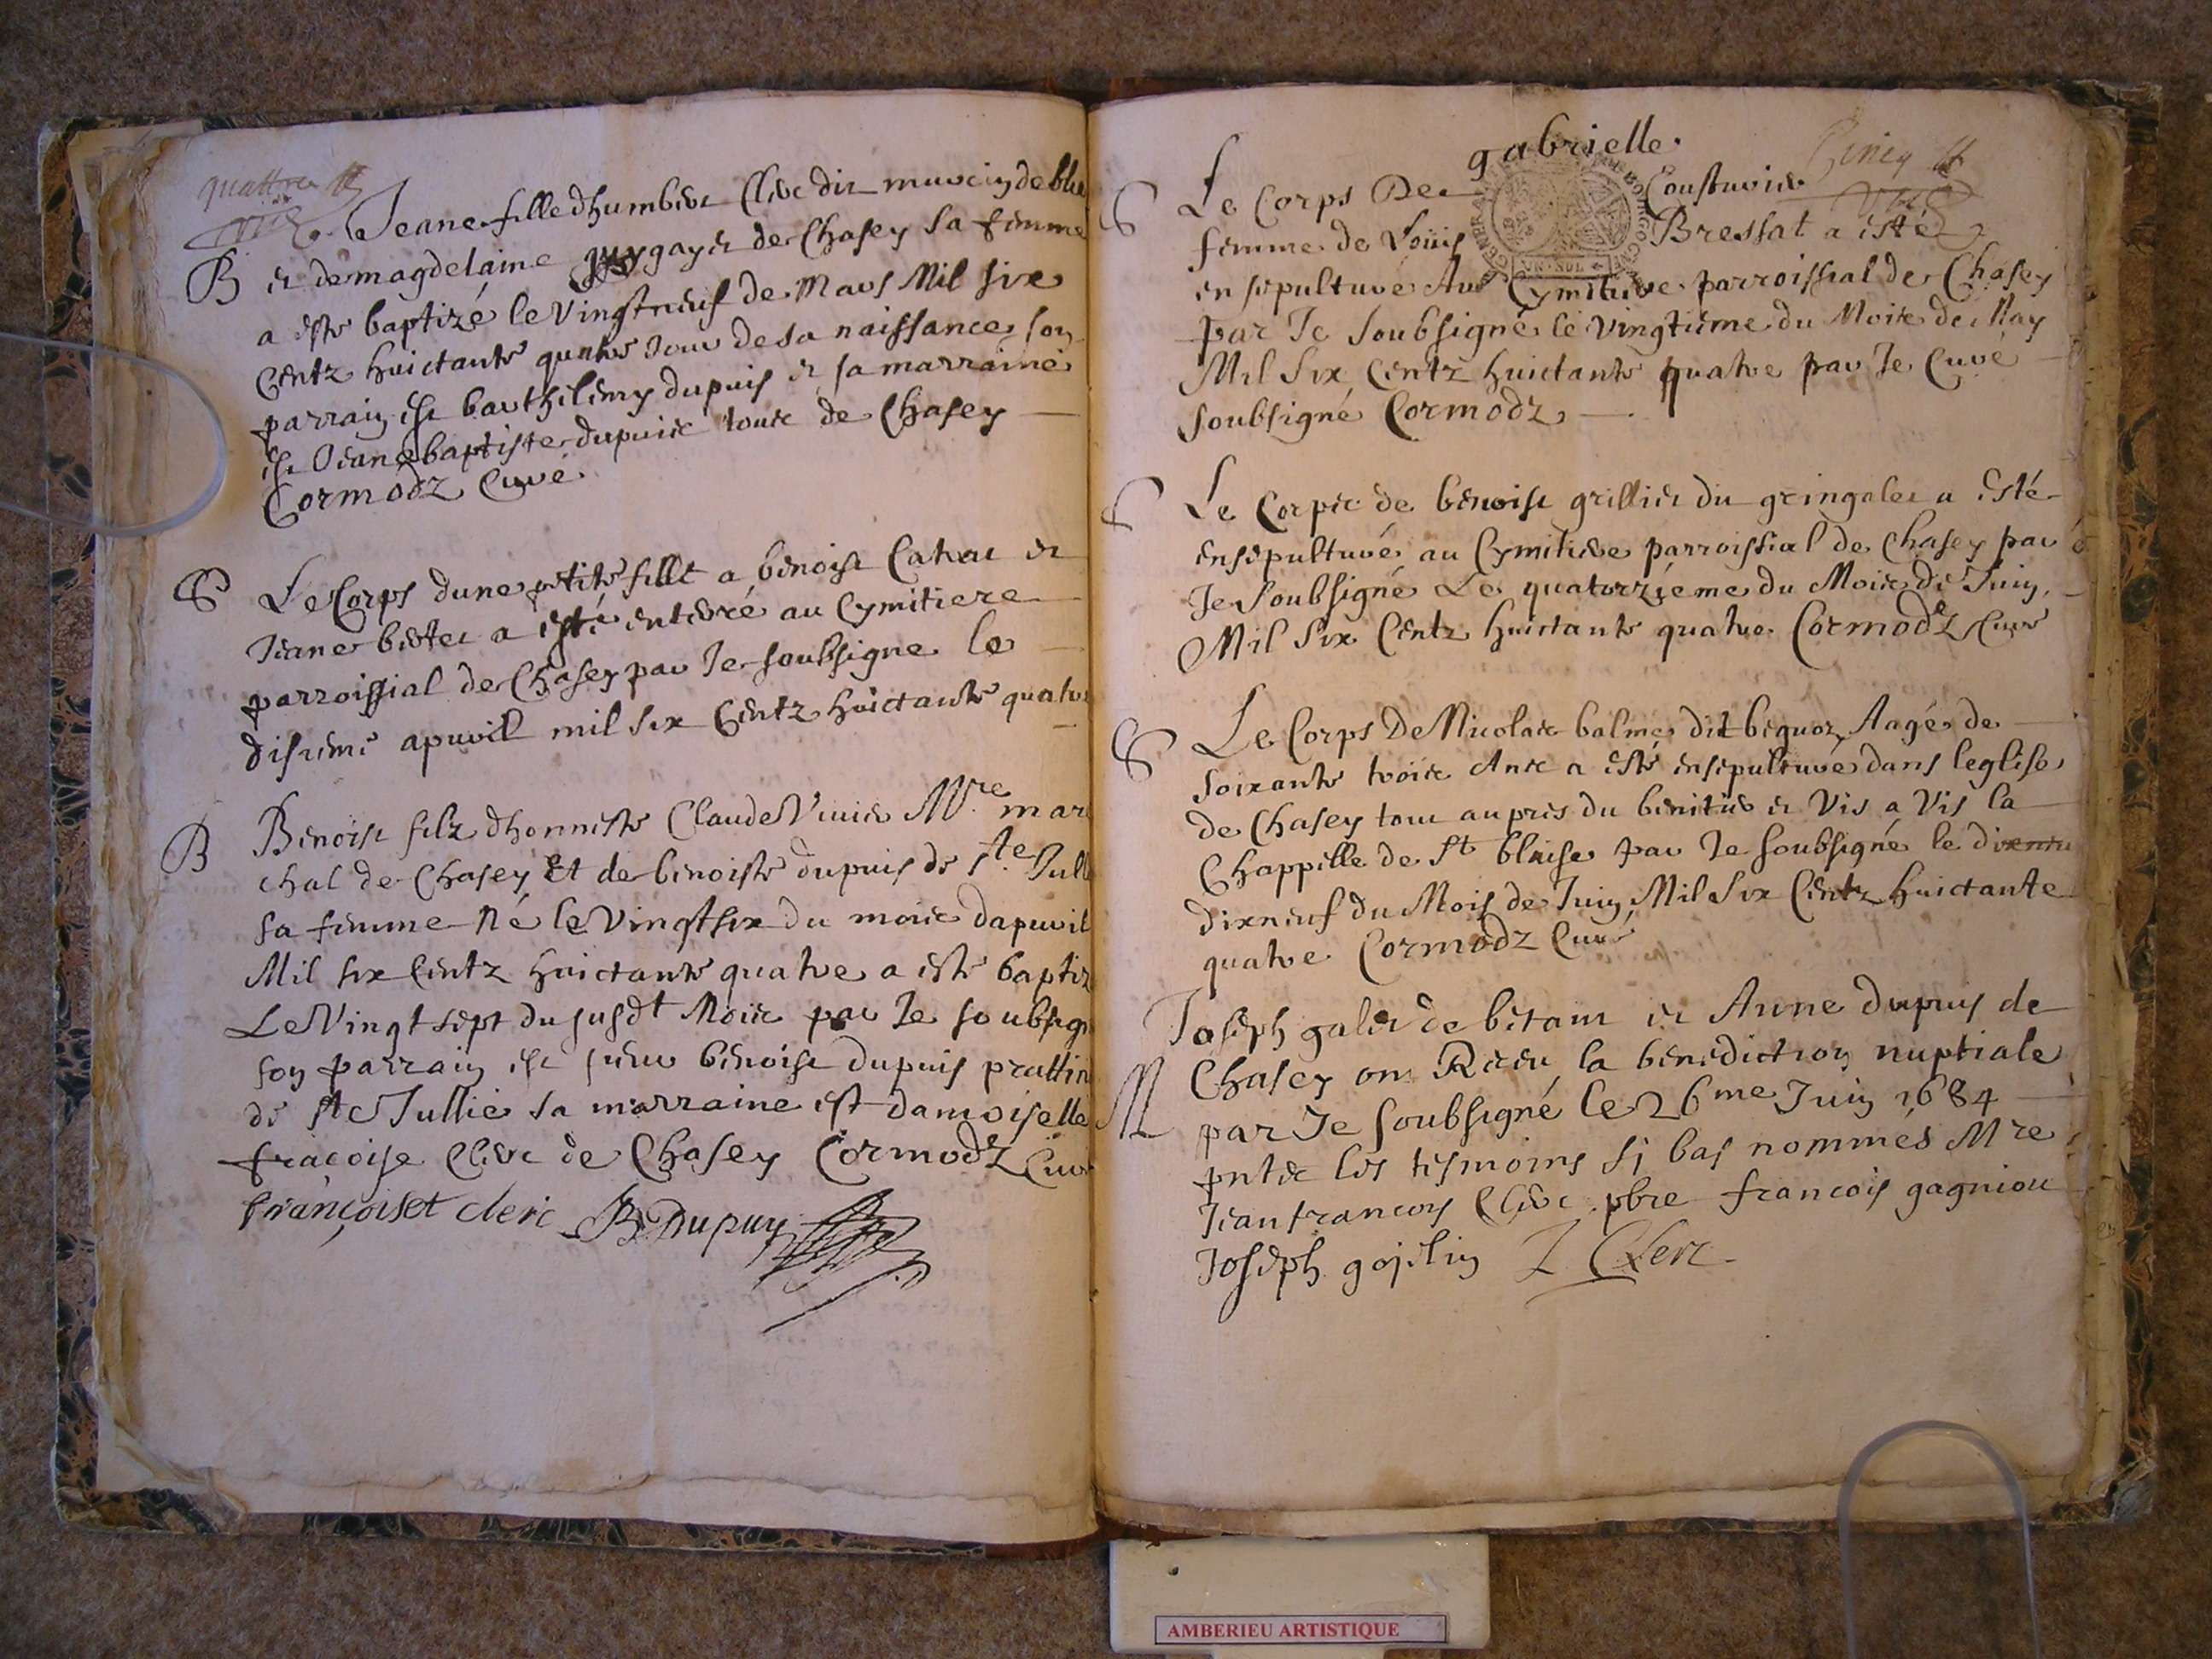 quattre
Jeane fille dhumbert Clerc dit
B et de magdelaine gayet de Chasey sa femme
a este baptizé le Vingtneuf de Mars Mil six
Centz huictante quatre Jour de sa naissance son
parrain est barthelemy dupuis et sa marraine
est Jeane baptiste dupuis tous de Chasey
Cormodz Curé
S Le Corps dune petite fille a benoist et
Jeane bertet a esté enterré au Cymitiere
parroissial de Chasey par Je soubsigne le
apvril mil six Centz huictante quatre
B Benoist filz dhonneste Claude Vinier Mre mare
chal de Chasey Et de benoiste dupuis de Ste Jull
sa femme Né le Vingtsix du mois dapvril
Mil six Centz huictante quatre a este baptiz
Le Vingt sept du susdt Mois par Je soubsig
son parrain est sieur benoist dupuis
de Ste Jullie sa marraine est damoiselle
fracoise Clerc de Chasey Cormodz Curé
françoiset clerc B Dupuy
gabrielle
S Le Corps De Cousturier
femme de Louis Bressat a esté
ensepulturé Au Cymitiere parroissial de Chasey
par Je Soubsigné le vingtieme du Mois de May
Mil Six Centz huictante quatre par Je Curé
soubsigné Cormodz
S Le Corps de benoist grillier du gringalet a esté
ensepulturé au Cymitiere parroissial de Chasey par
Je Soubsigné Le quatorzieme du Mois de Juin
Mil Six Centz huictante quatre Cormodz Curé
S Le Corps De Nicolas balme dit beguoz Aagé de
soixante trois Ans a esté ensepulturé dans leglise
de Chasey tout aupres du benitier et Vis a Vis la
Chappelle de St blaise par Je soubsigné le
dixneuf du Mois de Juin Mil Six Centz huictante
quatre Cormodz Curé
Joseph galet de betant et Anne dupuis de
M Chasey ont Receu la benediction nuptiale
par Je soubsigné le 26me Juin 1684
pntz les tesmoins si bas nommés Mre
Jean francois Clerc pbre francois gagniou
Joseph gojelin J Clerc
AMBERIEU ARTISTIQUE